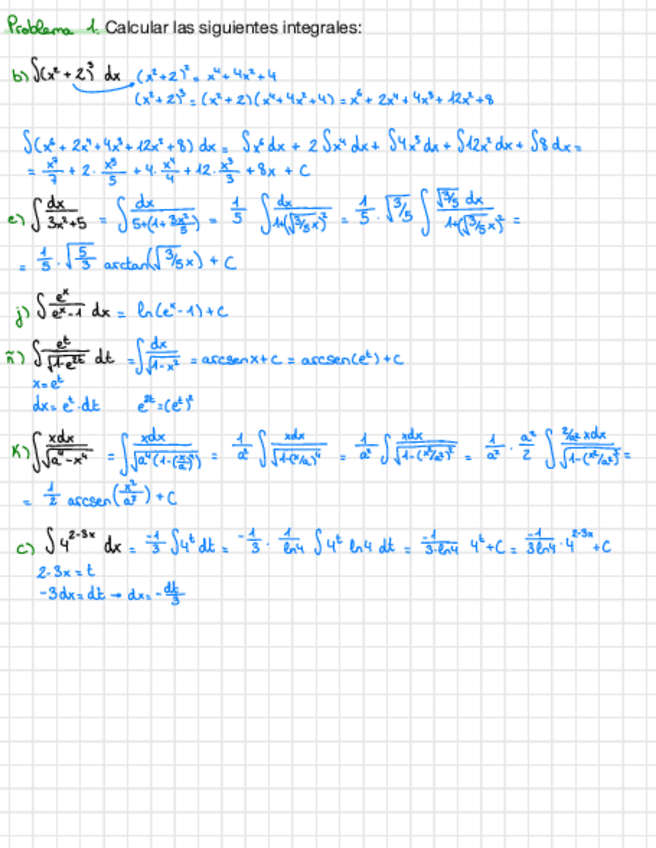 Problema 1. Calcular las siguientes integrales:
b) ∫(x²+2)³ dx (x²+2)² = x⁴+4x²+4
(x²+2)³ = (x²+2)(x⁴+4x²+4) = x⁶+2x⁴+4x³+12x²+8
∫(x⁶+2x⁴+4x³+12x²+8) dx = ∫x⁶dx + 2∫x⁴dx + ∫4x³dx + ∫12x²dx + ∫8dx =
= x⁷/7 + 2·x⁵/5 + 4·x⁴/4 + 12·x³/3 + 8x + C
e) ∫dx/(3x²+5) = ∫dx/(5+(1+3x²/5)) = 1/5 ∫dx/(1+(√3/5 x)²) = 1/5·√3/5 ∫√3/5 dx/(1+(√3/5 x)²) =
= 1/5·√5/3 arctan(√3/5 x) + C
j) ∫eˣ/(eˣ-1) dx = ln(eˣ-1)+C
ñ) ∫eᵗ/√(1-e²ᵗ) dt = ∫dx/√(1-x²) = arcsenx+C = arcsen(eᵗ)+C
x=eᵗ
dx=eᵗ·dt e²ᵗ=(eᵗ)²
K) ∫xdx/√(a⁴-x⁴) = ∫xdx/√(a⁴(1-(x/a)⁴)) = 1/a² ∫xdx/√(1-(x/a)⁴) = 1/a² ∫xdx/√(1-(x²/a²)²) = 1/a²·a²/2 ∫2/a² xdx/√(1-(x²/a²)²) =
= 1/2 arcsen(x²/a²) + C
c) ∫4²⁻³ˣ dx = -1/3 ∫4ᵗdt = -1/3·1/ln4 ∫4ᵗ ln4 dt = -1/(3·ln4) 4ᵗ+C = -1/(3ln4)·4²⁻³ˣ+C
2-3x=t
-3dx=dt → dx=-dt/3